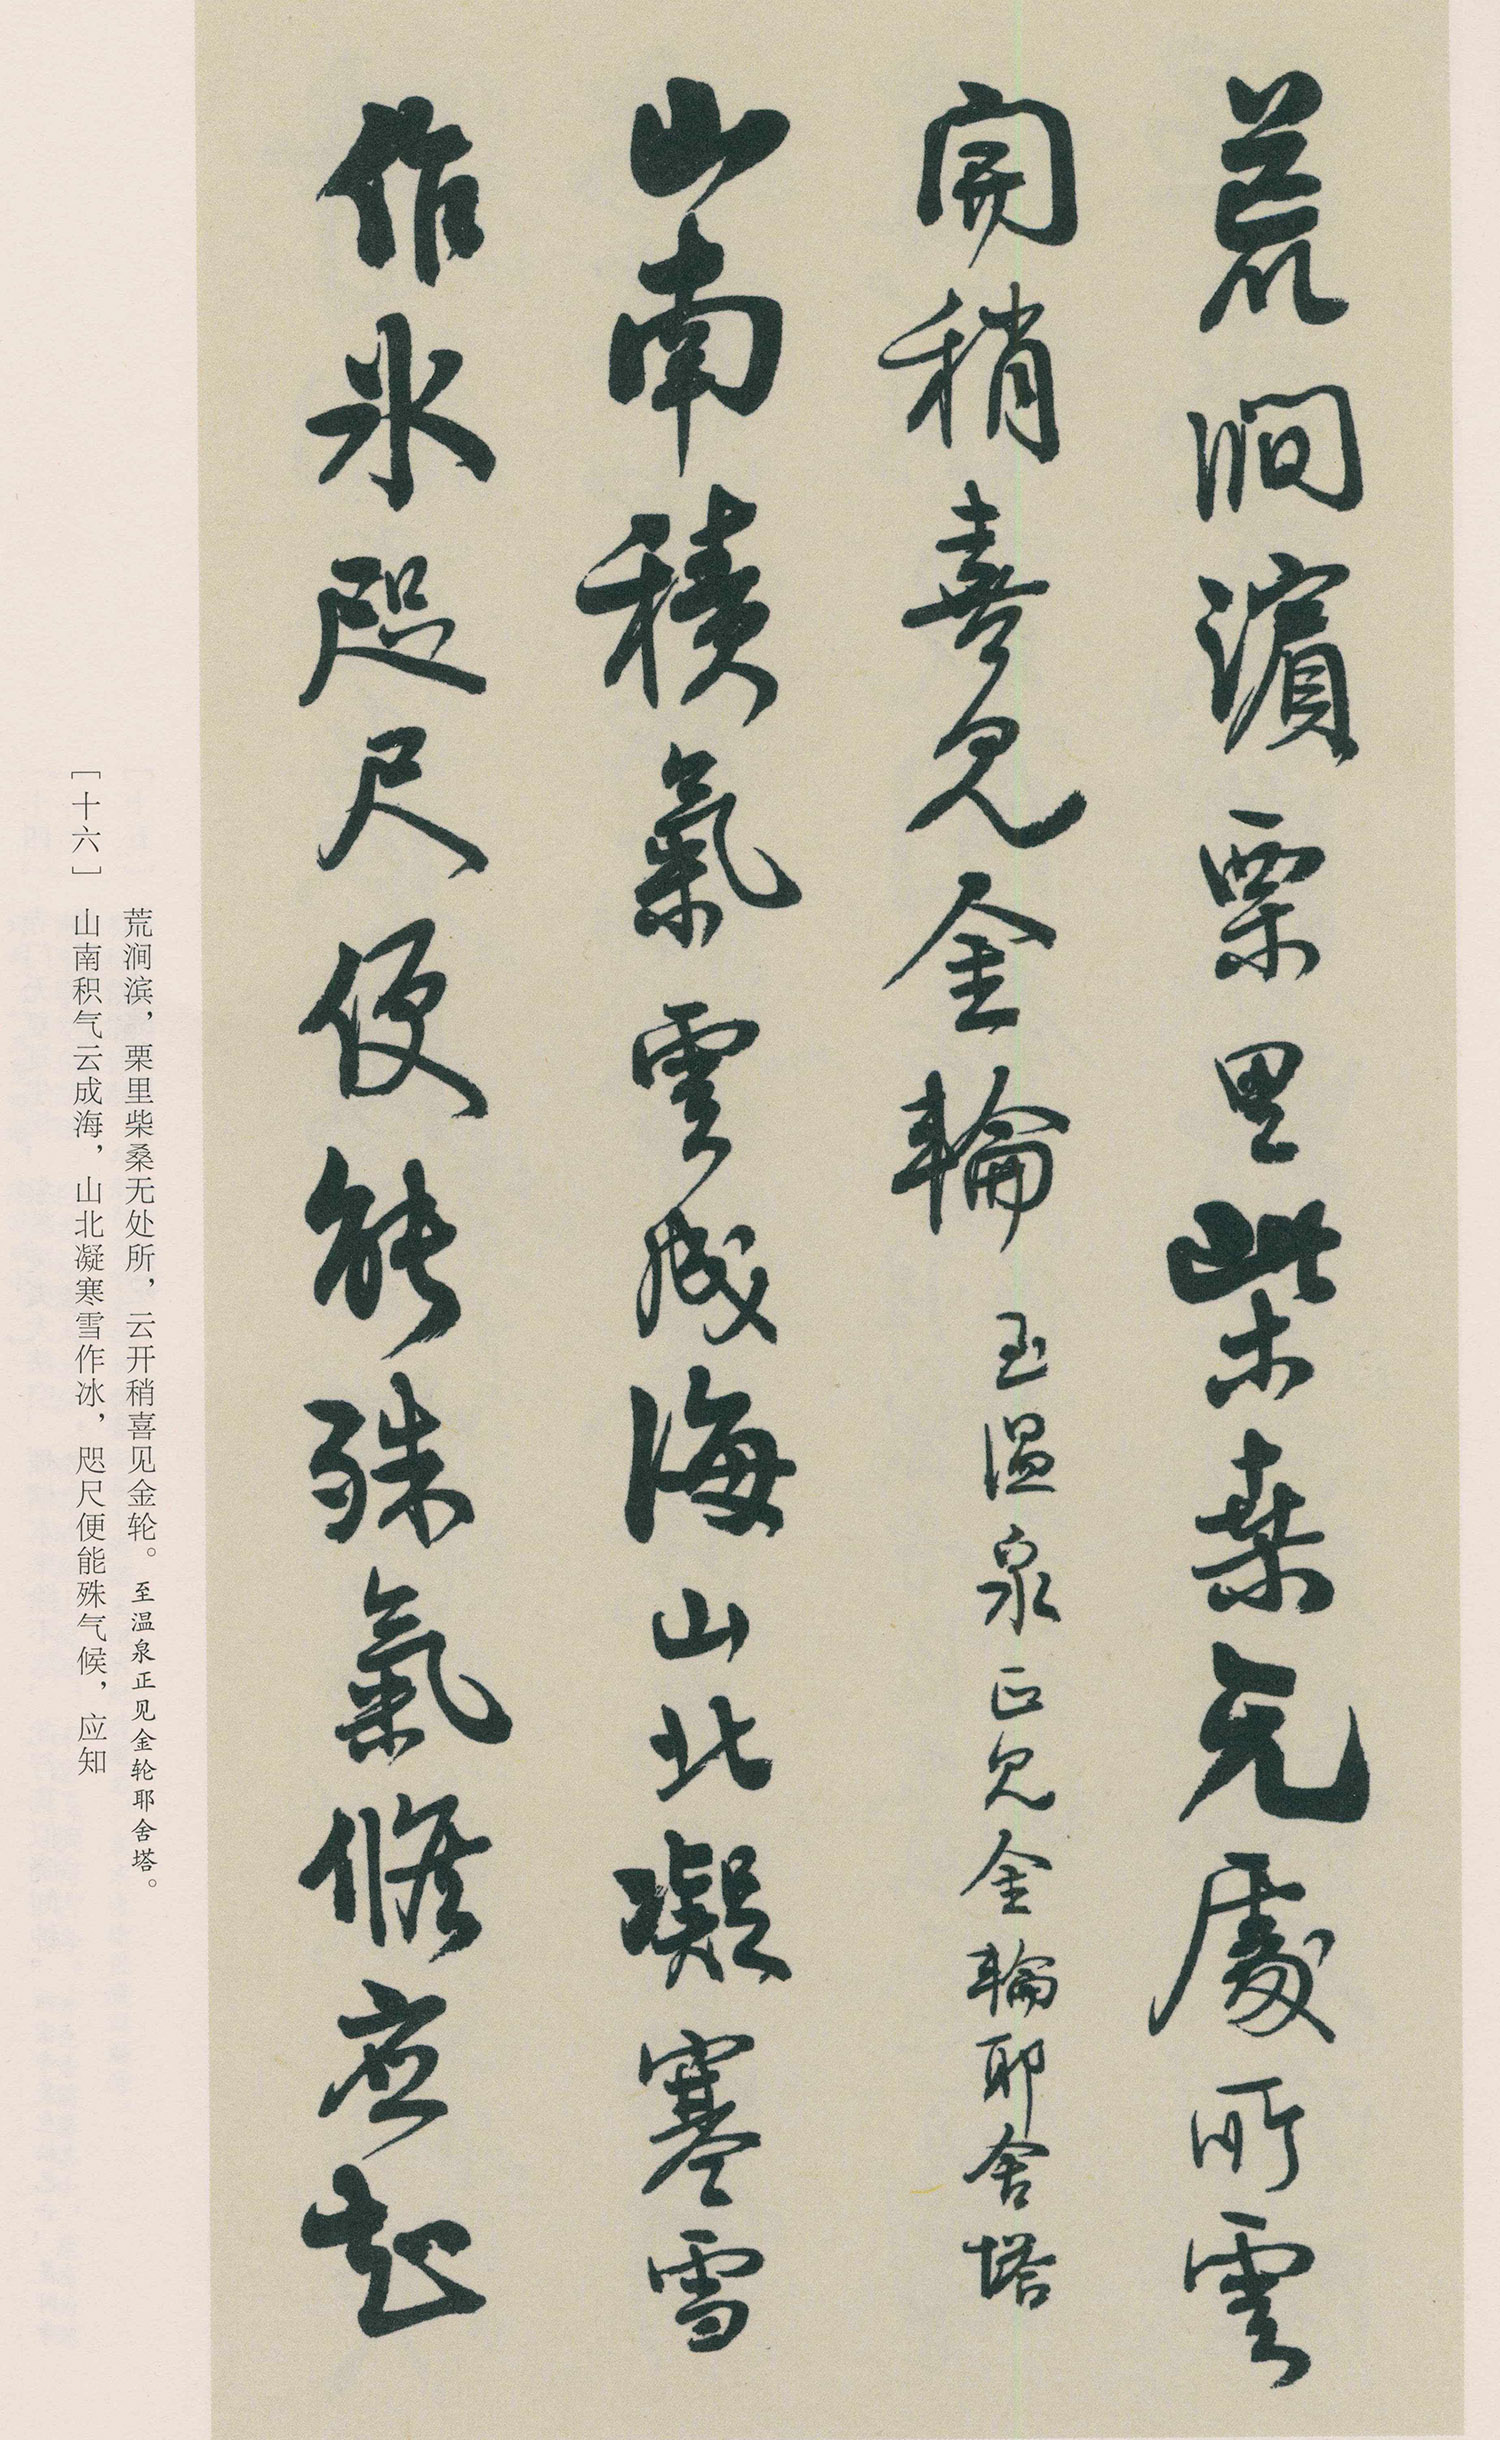 荒澗濱栗里柴桒无處所雲
開稍喜見金輪 至温泉正見金輪耶舍塔
山南積氣雲成海山北凝寒雪
作氷咫尺便能殊氣候應起
荒涧滨，栗里柴桑无处所，云开稍喜见金轮。至温泉正见金轮耶舍塔。
［十六］ 山南积气云成海，山北凝寒雪作冰，咫尺便能殊气候，应知